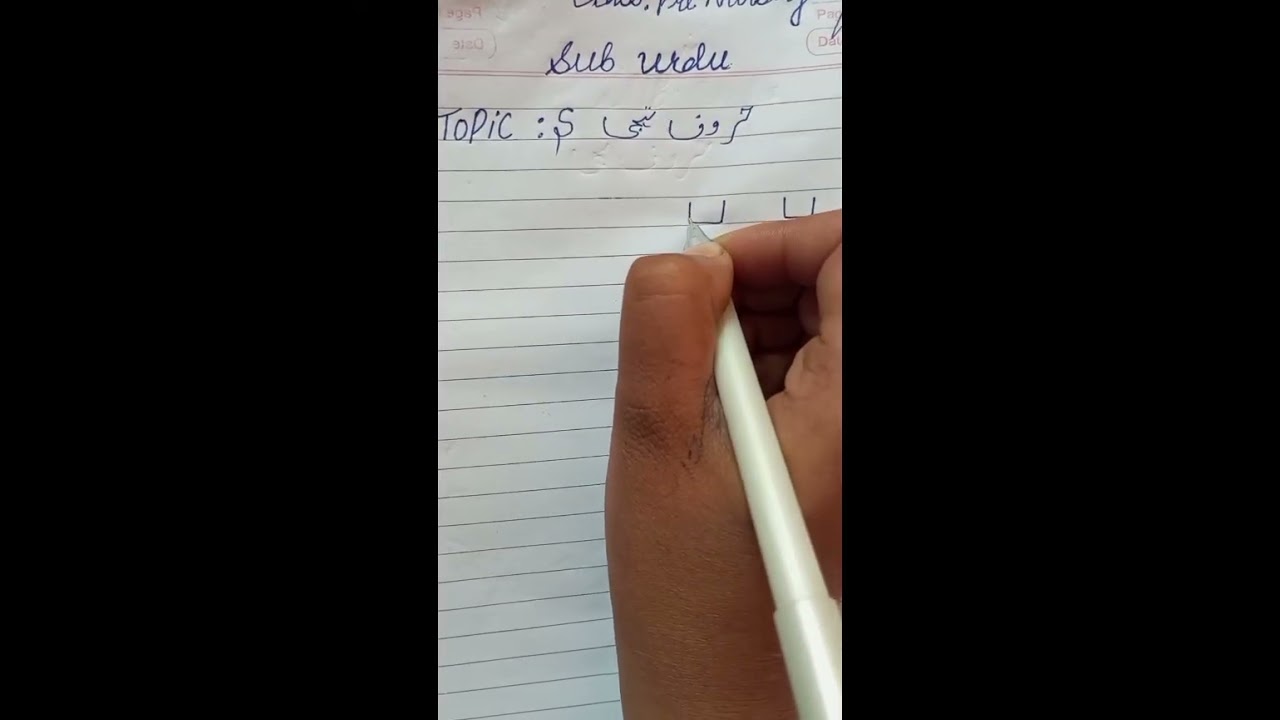 Class. Pre Nursery
Sub urdu
TOPIC : حروف تہجی